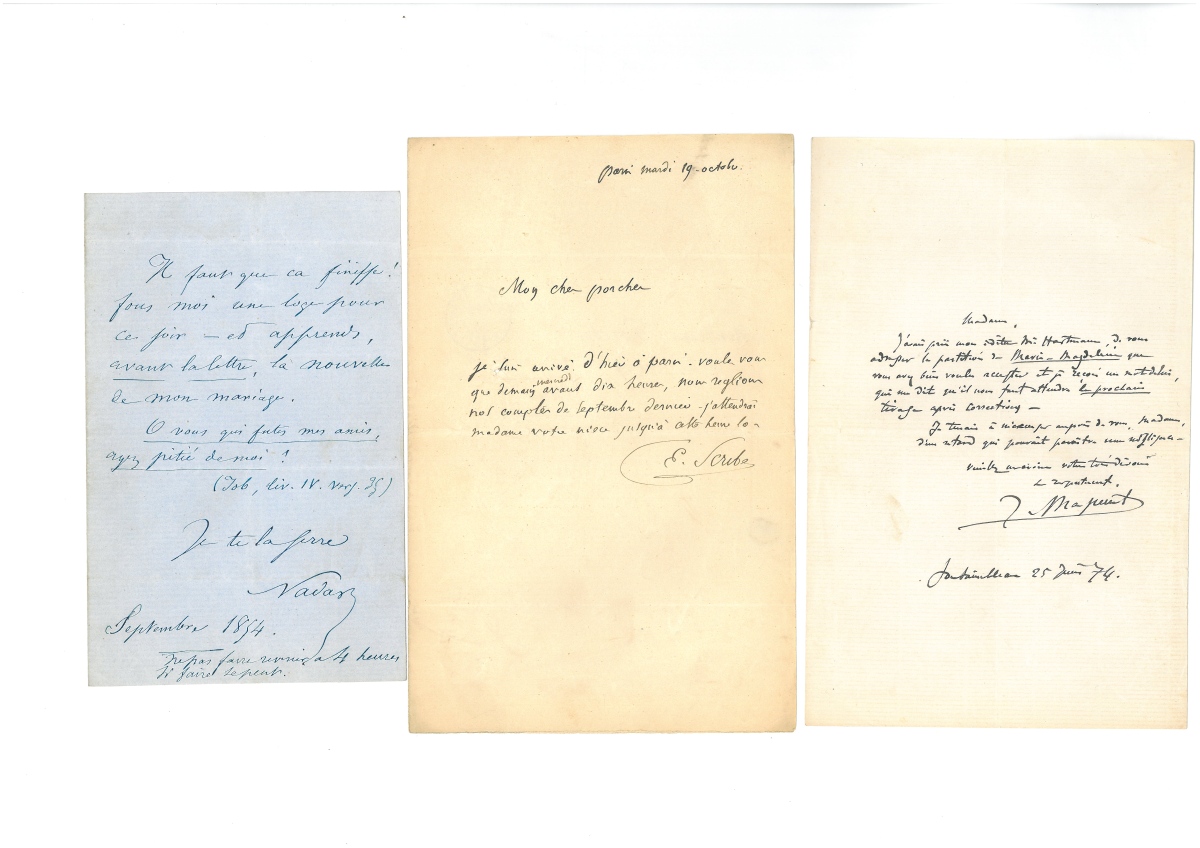 Il faut que ca finisse !
fous moi une loge pour
ce soir — et apprends,
avant la lettre, la nouvelle
de mon mariage.
O vous qui futes mes amis,
ayez pitié de moi !
(Job, liv. IV. vers. 35)
Je te la serre
Nadar
Septembre 1854.
Ne pas faire revenir à 4 heures
si faire se peut.
paris mardi 19 octobre.
Mon cher porcher
je suis arrivé d'hier à paris. voulez vous
que demain mercredi avant dix heures, nous reglions
nos comptes de septembre dernier - j'attendrai
madame votre nièce jusqu'à cette heure la -
E. Scribe
Madame,
J'avais prié mon éditeur Mr Hartmann, de vous
adresser la partition de Marie-Magdeleine que
vous avez bien voulu accepter et je reçois un mot de lui,
qui me dit qu'il nous faut attendre le prochain
tirage après corrections —
Je tenais à m'excuser auprès de vous, Madame,
d'un retard qui pouvait paraître une négligence —
Veuillez me croire votre très dévoué
et respectueux.
J. Massenet
fontainebleau 25 Juin 74.